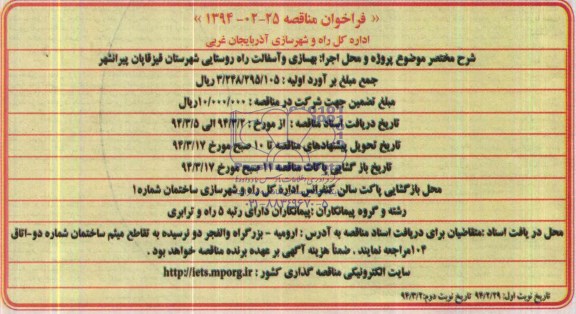 « فراخوان مناقصه ۲۵-۰۲-۱۳۹۴ »
اداره کل راه و شهرسازی آذربایجان غربی
شرح مختصر موضوع پروژه و محل اجرا: بهسازی وآسفالت راه روستایی شهرستان قیزقاپان پیرانشهر
جمع مبلغ بر آورد اولیه : ۳/۲۴۸/۲۹۵/۱۰۵ ریال
مبلغ تضمین جهت شرکت در مناقصه : ۱۰/۰۰۰/۰۰۰ریال
تاریخ دریافت اسناد مناقصه : از مورخ : ۹۴/۳/۲ الی ۹۴/۳/۵
تاریخ تحویل پیشنهادهای مناقصه تا ۱۰ صبح مورخ ۹۴/۳/۱۷
تاریخ باز گشایی پاکات مناقصه ۱۱ صبح مورخ ۹۴/۳/۱۷
محل بازگشایی پاکت سالن کنفرانس اداره کل راه و شهرسازی ساختمان شماره۱
رشته و گروه پیمانکاران :پیمانکاران دارای رتبه ۵ راه و ترابری
محل در یافت اسناد :متقاضیان برای دریافت اسناد مناقصه به آدرس : ارومیه - بزرگراه والفجر دو نرسیده به تقاطع میثم ساختمان شماره دو-اتاق
۱۰۴مراجعه نمایند . ضمناً هزینه آگهی بر عهده برنده مناقصه خواهد بود .
سایت الکترونیکی مناقصه گذاری کشور : http://iets.mporg.ir
تاریخ نوبت اول: ۹۴/۲/۲۹ تاریخ نوبت دوم:۹۴/۳/۲
۰۲۱-۸۸۳۴۹۶۷۰-۵